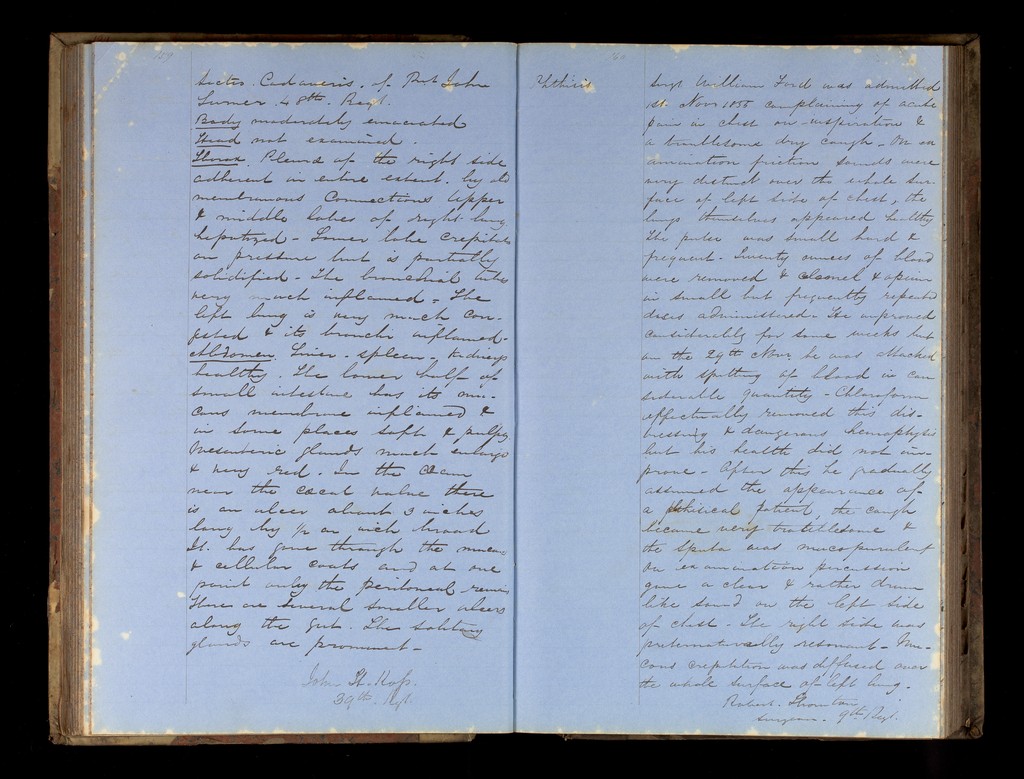 Sectio Cadaveris of Pvt John
Turner 48th Regt.
Body moderately emaciated
Head not examined.
Thorax. Pleura of the right side
adherent in entire extent by old
membranous Connections Upper
& middle lobes of right lung
hepatized - Lower lobe crepitates
on pressure but is partially
solidified - The bronchial tubes
very much inflamed - The
left lung is very much con-
gested & its bronchi inflamed -
Abdomen. Liver - spleen - kidneys
healthy. The lower half of
small intestine has its mu-
cous membrane inflamed &
in some places soft & pulpy
Mesenteric glands much enlarged
& very red. In the Cæcum
near the cæcal valve there
is an ulcer about 3 inches
long by ½ an inch broad
It has gone through the mucous
& cellular coats and at one
point only the peritoneal remains
There are several smaller ulcers
along the gut. The solitary
glands are prominent -
John H. Ross.
39th Rgt.
Phthisis
Sergt William Ford was admitted
1st Novr complaining of acute
pain in chest on inspiration &
a troublesome dry cough - On ex
amination friction sounds were
very distinct over the whole sur-
face of left side of chest, the
lungs themselves appeared healthy
The pulse was small hard &
frequent - Twenty ounces of blood
were removed & calomel & opium
in small but frequently repeated
doses administered - He improved
considerably for some weeks but
on the 29th Novr he was attacked
with spitting of blood in con
siderable quantity - Chloroform
effectually removed this dis-
tressing & dangerous hemoptysis
but his health did not im-
prove - After this he gradually
assumed the appearance of
a pthisical patient, the cough
became very troublesome &
the sputa was mucopurulent
On examination percussion
gave a clear & rather drum
like sound on the left side
of chest - The right side was
preternaturally resonant - Mu-
cous crepitation was diffused over
the whole surface of left lung -
Robert Thornton
Surgeon - 9th Regt.